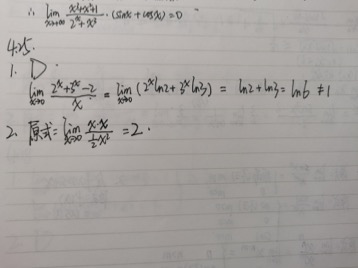 ∴ lim x→+∞ (x³+x²+1)/(2ˣ+x³) · (sinx + cosx) = 0
4.25.
1. D.
lim x→0 (2ˣ+3ˣ-2)/x = lim x→0 (2ˣln2+3ˣln3) = ln2+ln3 = ln6 ≠ 1
2. 原式 = lim x→0 (x·x)/(½x²) = 2.